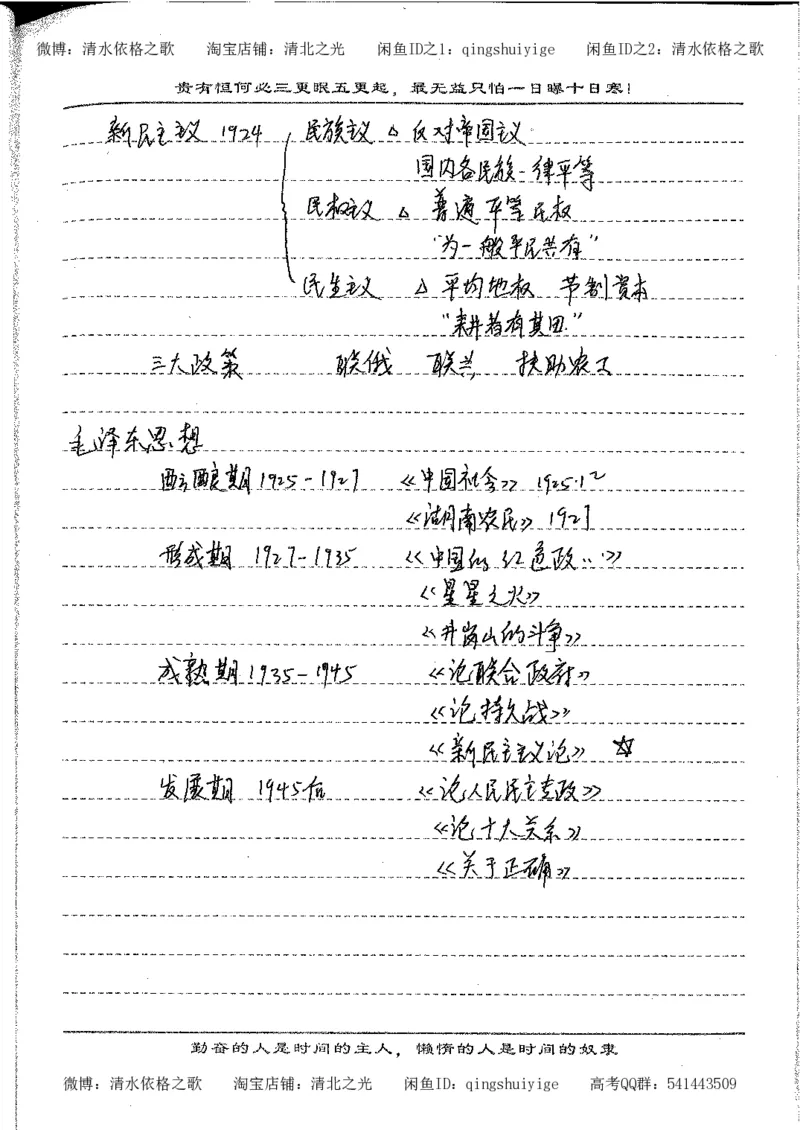 微博：清水依格之歌 淘宝店铺：清北之光 闲鱼ID之1：qingshuiyige 闲鱼ID之2：清水依格之歌
贵有恒何必三更眠五更起，最无益只怕一日曝十日寒！
新民主义 1924 民族主义 △ 反对帝国主义
国内各民族一律平等
民权主义 △ 普遍平等民权
“为一般平民共有”
民生主义 △ 平均地权 节制资本
“耕者有其田”
三大政策 联俄 联共 扶助农工
毛泽东思想
酝酿期 1925-1927 《中国社会》 1925.12
《湖南农民》 1927
形成期 1927-1935 《中国的红色政…》
《星星之火》
《井岗山的斗争》
成熟期 1935-1945 《论联合政府》
《论持久战》
《新民主主义论》 ☆
发展期 1945后 《论人民民主专政》
《论十大关系》
《关于正确》
勤奋的人是时间的主人，懒惰的人是时间的奴隶
微博：清水依格之歌 淘宝店铺：清北之光 闲鱼ID：qingshuiyige 高考QQ群：541443509